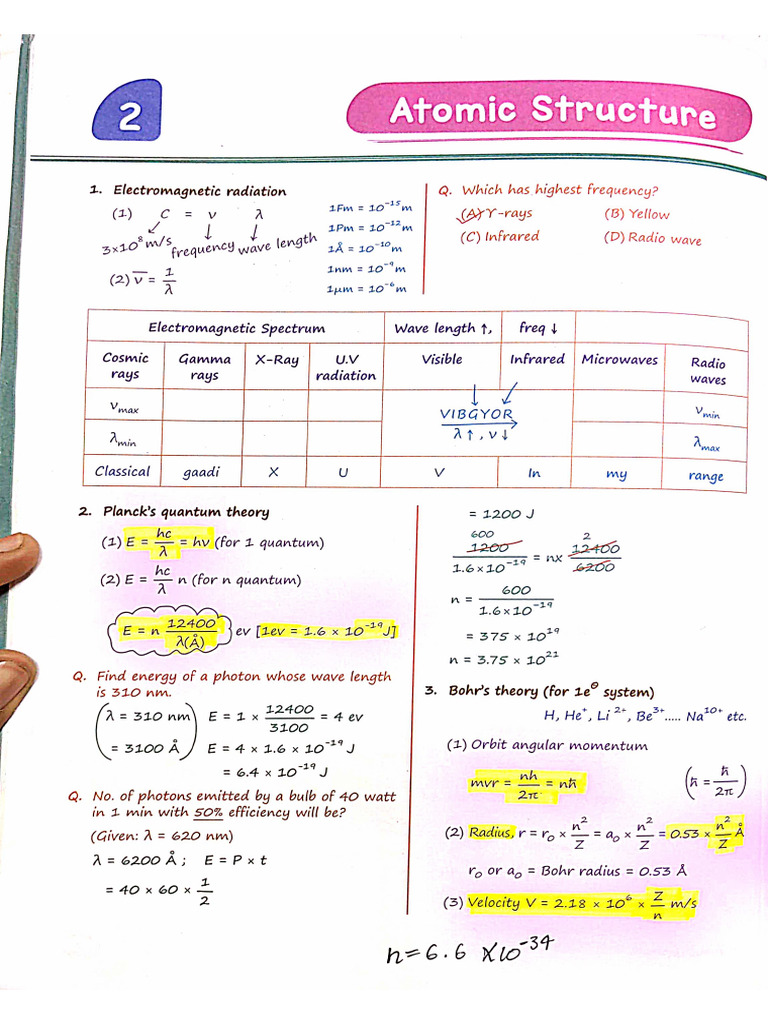 2
Atomic Structure
1. Electromagnetic radiation
(1) C = ν λ
3×10⁸ m/s frequency wave length
(2) ν̅ = 1/λ
1Fm = 10⁻¹⁵m
1Pm = 10⁻¹²m
1Å = 10⁻¹⁰m
1nm = 10⁻⁹m
1μm = 10⁻⁶m
Q. Which has highest frequency?
(A) ϒ-rays (B) Yellow
(C) Infrared (D) Radio wave
Electromagnetic Spectrum Wave length ↑, freq ↓
Cosmic rays Gamma rays X-Ray U.V radiation Visible Infrared Microwaves Radio waves
ν max VIBGYOR ν min
λ min λ ↑ , ν ↓ λ max
Classical gaadi X U V In my range
2. Planck's quantum theory
(1) E = hc/λ = hν (for 1 quantum)
(2) E = hc/λ n (for n quantum)
E = n 12400/λ(Å) ev [1ev = 1.6 × 10⁻¹⁹J]
Q. Find energy of a photon whose wave length
is 310 nm.
(λ = 310 nm) E = 1 × 12400/3100 = 4 ev
= 3100 Å E = 4 × 1.6 × 10⁻¹⁹ J
= 6.4 × 10⁻¹⁹ J
Q. No. of photons emitted by a bulb of 40 watt
in 1 min with 50% efficiency will be?
(Given: λ = 620 nm)
λ = 6200 Å ; E = P × t
= 40 × 60 × 1/2
= 1200 J
600 2
1200/1.6×10⁻¹⁹ = nx 12400/6200
n = 600/1.6×10⁻¹⁹
= 375 × 10¹⁹
n = 3.75 × 10²¹
3. Bohr's theory (for 1e⊖ system)
H, He⁺, Li ²⁺, Be³⁺..... Na¹⁰⁺ etc.
(1) Orbit angular momentum
mvr = nh/2π = nħ (ħ = ħ/2π)
(2) Radius, r = r₀ × n²/Z = a₀ × n²/Z = 0.53 × n²/Z Å
r₀ or a₀ = Bohr radius = 0.53 Å
(3) Velocity V = 2.18 × 10⁶ × Z/n m/s
h=6.6 ×10⁻³⁴